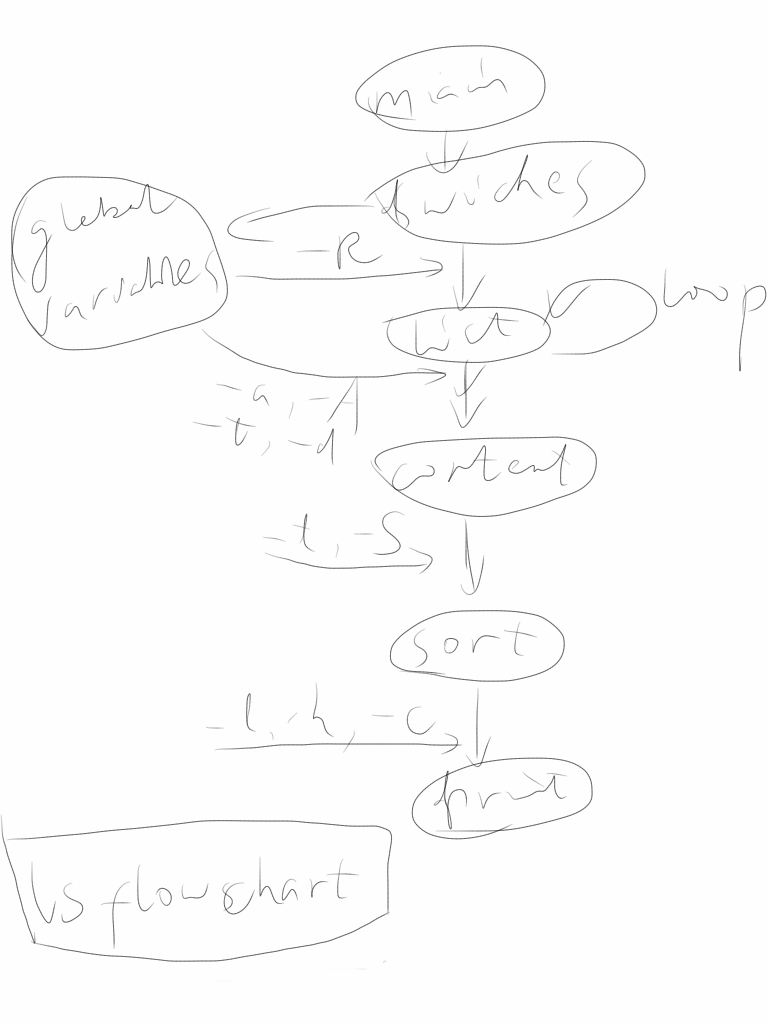 main
switches
global
variables
-R
list
loop
-a, -A
-t, -d
content
-t, -S
sort
-l, -h, -c
print
ls flowchart